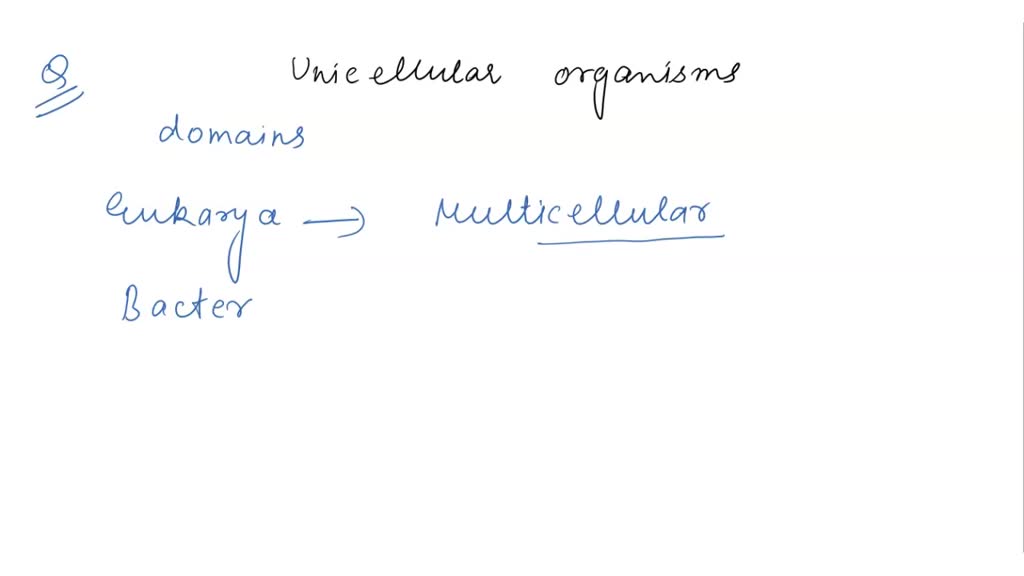 Q Unicellular organisms
domains
Eukarya → Multicellular
Bacter